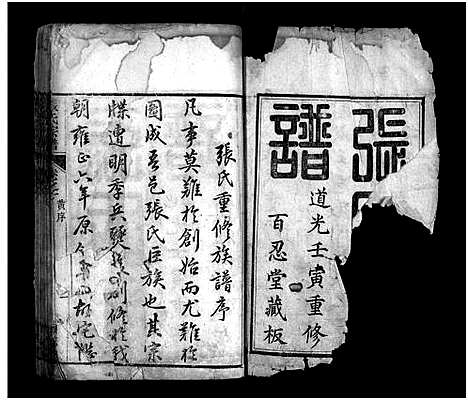 張
譜
道光壬寅重修
百忍堂藏板
張氏重修族譜序
凡事莫難於創始而尤難於
圖成吾邑張氏巨族也其宗
牒遭明季兵燹創修於我
朝雍正六年原
序